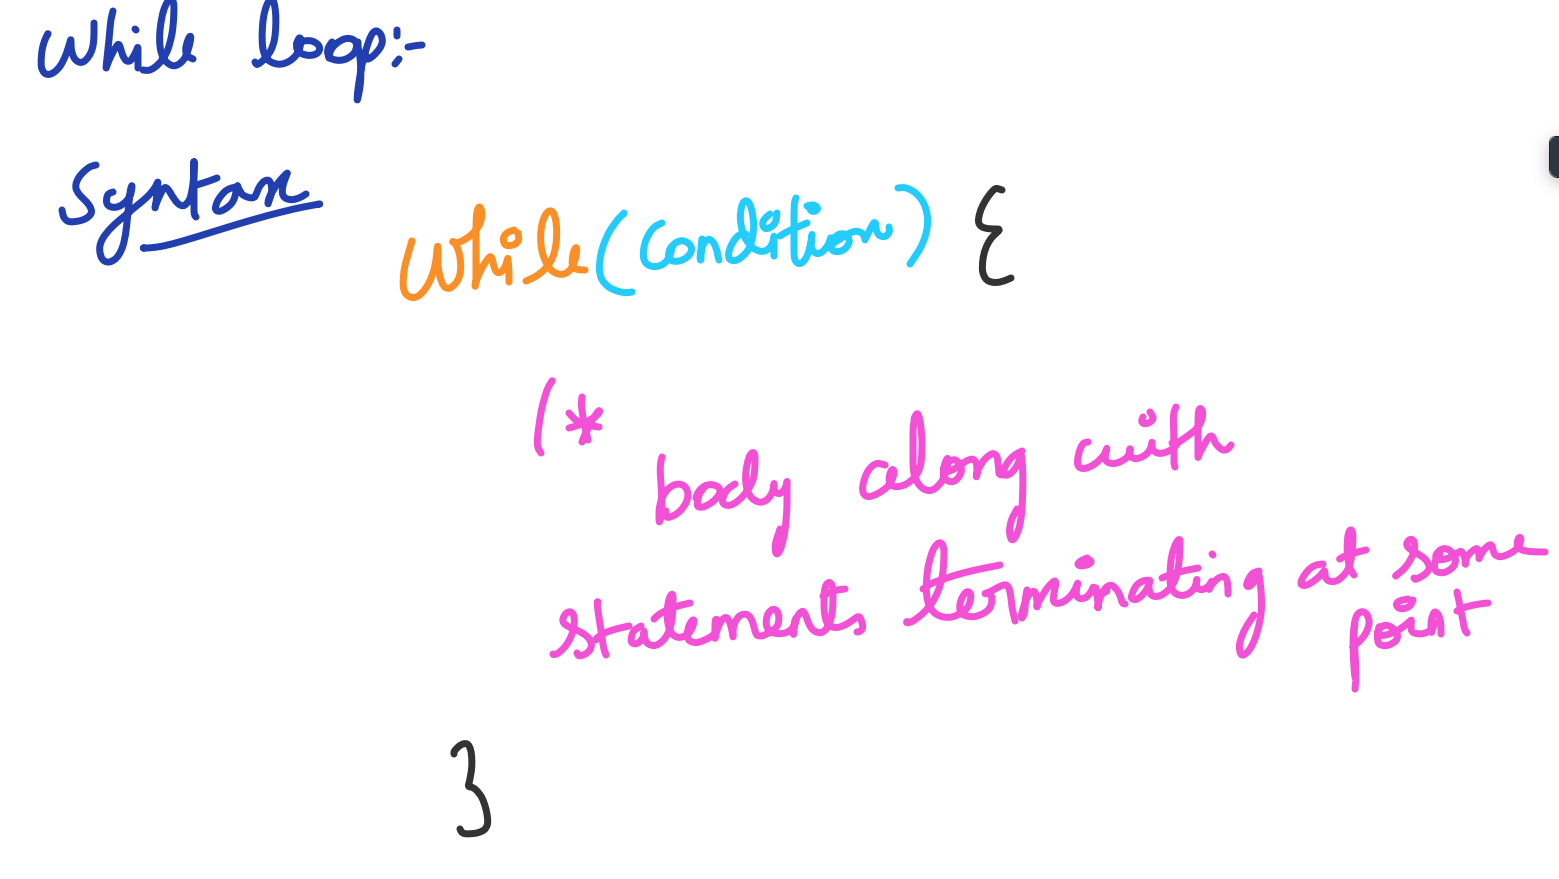 While loop:-
Syntax
while (condition) {
/*
body along with
statements terminating at some
point
}